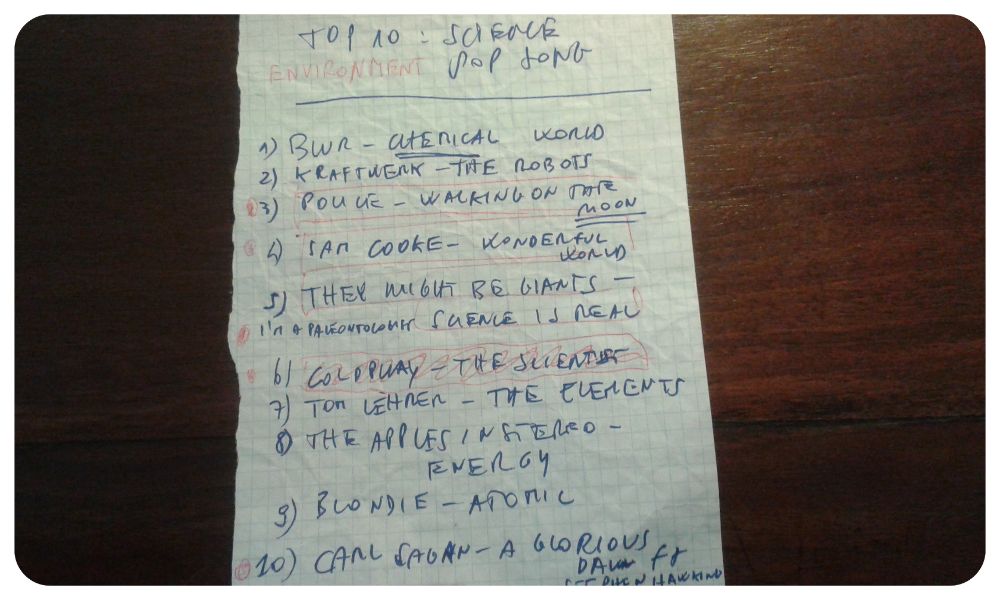 TOP 10 : SCIENCE
ENVIRONMENT POP SONG
1) BLUR - CHEMICAL WORLD
2) KRAFTWERK - THE ROBOTS
3) POLICE - WALKING ON THE
MOON
4) SAM COOKE - WONDERFUL
WORLD
5) THEY MIGHT BE GIANTS -
I'M A PALEONTOLOGIST SCIENCE IS REAL
6) COLDPLAY - THE SCIENTIST
7) TOM LEHRER - THE ELEMENTS
8) THE APPLES IN STEREO -
ENERGY
9) BLONDIE - ATOMIC
10) CARL SAGAN - A GLORIOUS
DAWN ft
STEPHEN HAWKING